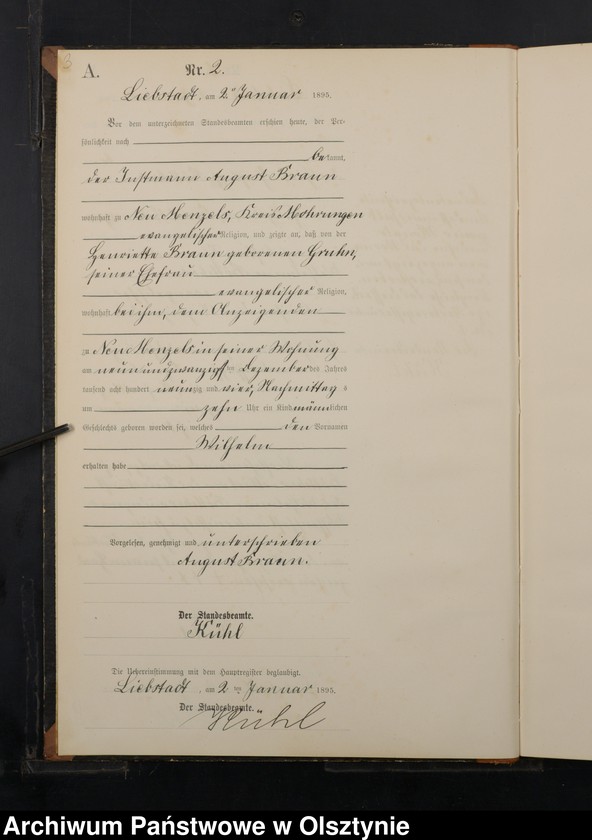 3
A.
Nr. 2.
Liebstadt, am 2ten Januar 1895.
Vor dem unterzeichneten Standesbeamten erschien heute, der Per-
sönlichkeit nach
bekannt,
der Instmann August Braun
wohnhaft zu Neu Henzels, Kreis Mohrungen
evangelischer Religion, und zeigte an, daß von der
Henriette Braun geborenen Gruhn,
seiner Ehefrau
evangelischer Religion,
wohnhaft bei ihm, dem Anzeigenden
zu Neu Henzels in seiner Wohnung
am neun und zwanzigsten Dezember des Jahres
tausend acht hundert neunzig und vier, Nachmittags
um zehn Uhr ein Kind männlichen
Geschlechts geboren worden sei, welches den Vornamen
Wilhelm
erhalten habe
Vorgelesen, genehmigt und unterschrieben
August Braun.
Der Standesbeamte.
Kühl
Die Uebereinstimmung mit dem Hauptregister beglaubigt.
Liebstadt, am 2ten Januar 1895.
Der Standesbeamte.
Kühl
Archiwum Państwowe w Olsztynie